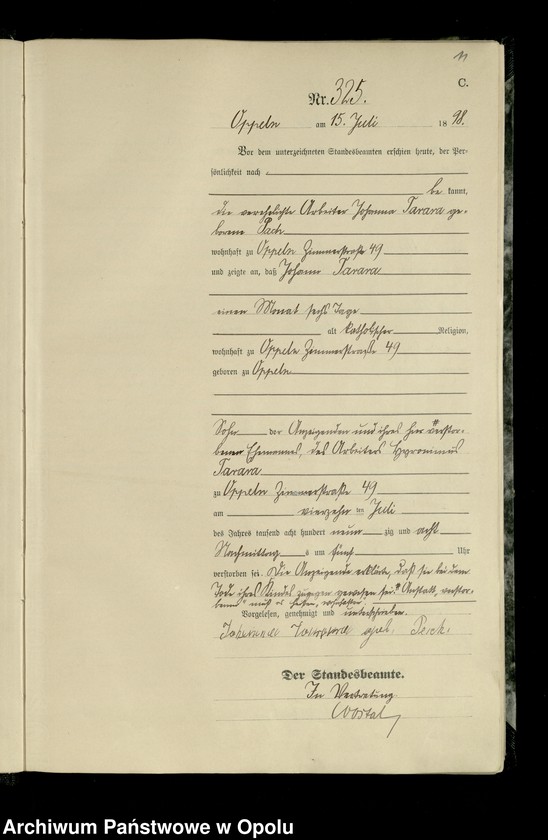 11
C.
Nr. 325.
Oppeln am 15. Juli 1898.
Vor dem unterzeichneten Standesbeamten erschien heute, der Per-
sönlichkeit nach
be kannt,
die verehelichte Arbeiter Johanna Tarara ge-
borene
wohnhaft zu Oppeln Zimmerstraße 49
und zeigte an, daß Johann Tarara
einen Monat sechs Tage
alt katholischer Religion,
wohnhaft zu Oppeln Zimmerstraße 49
geboren zu Oppeln
Sohn der Anzeigenden und ihres hier verstor-
benen Ehemannes, des Arbeiters Hyronimus
Tarara
zu Oppeln Zimmerstraße 49
am vierzehn ten Juli
des Jahres tausend acht hundert neun zig und acht
Nachmittag s um fünf Uhr
verstorben sei. Die Anzeigende erklärte, daß sie bei dem
Tode ihres Kindes zugegen gewesen sei. Anstatt „verstor-
benen" muß es heißen,
Vorgelesen, genehmigt und unterschrieben.
Johanna geb.
Der Standesbeamte.
In Vertretung
Archiwum Państwowe w Opolu